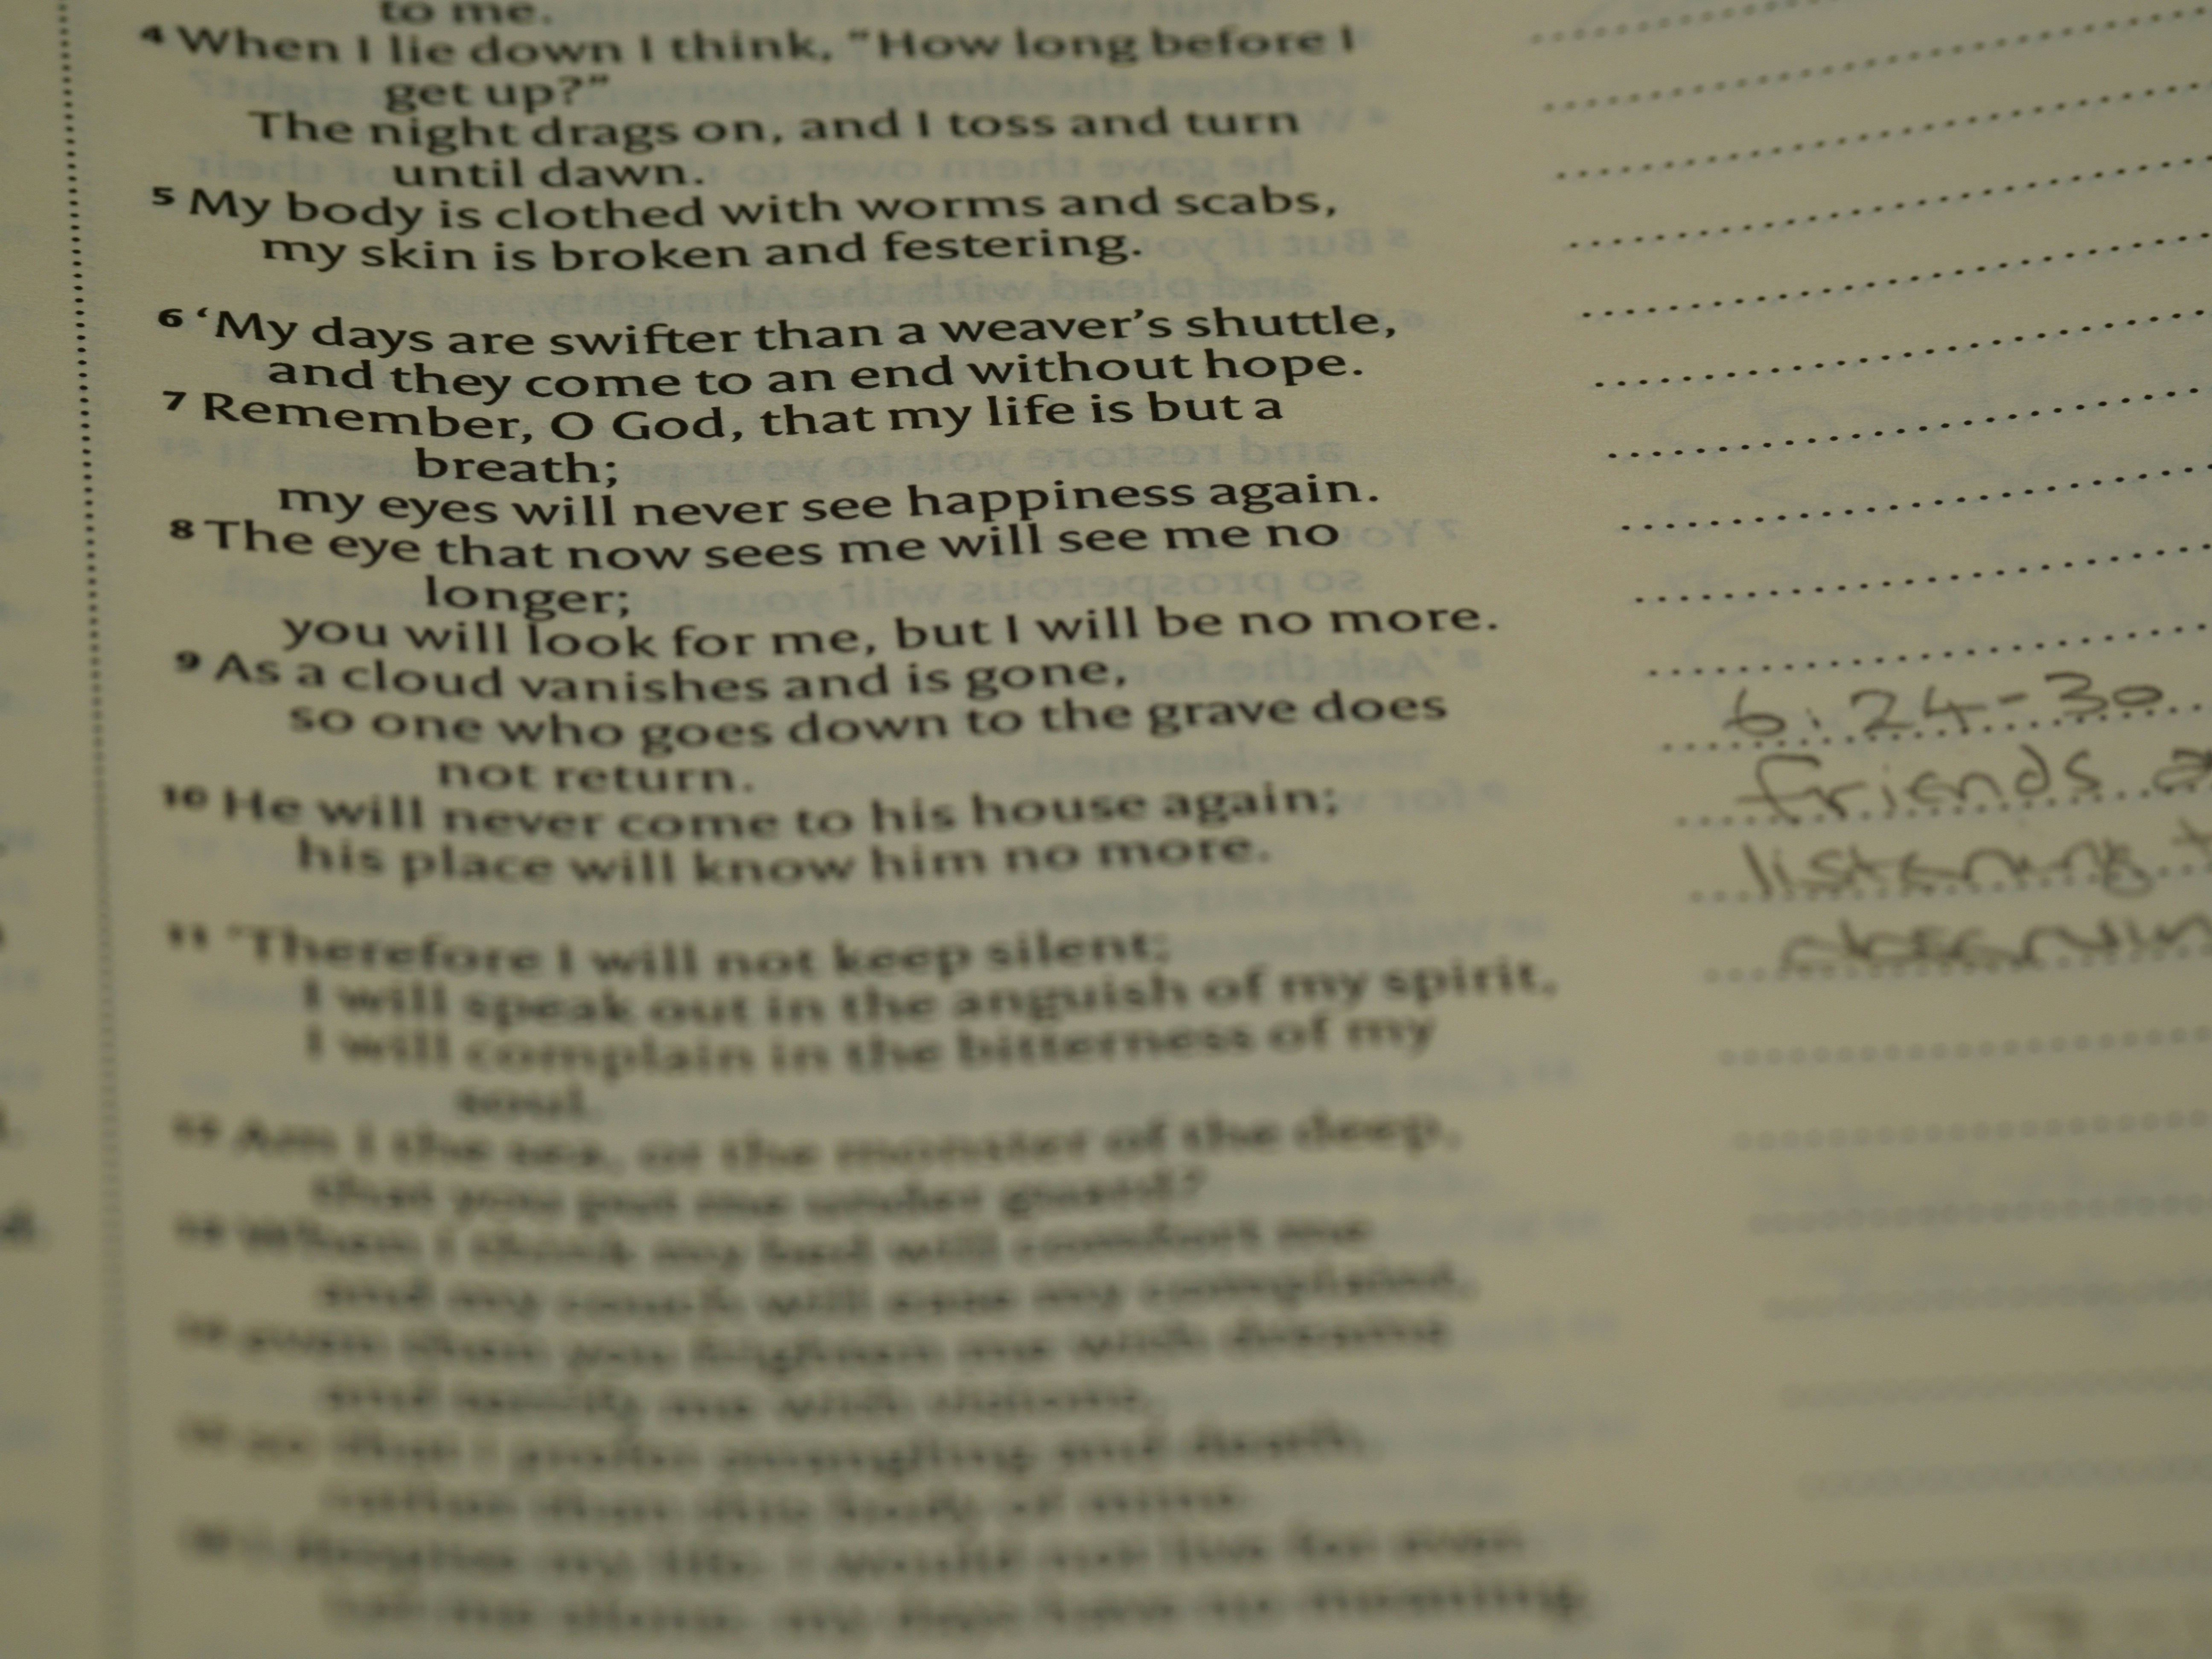 to me.
4 When I lie down I think, “How long before I
get up?”
The night drags on, and I toss and turn
until dawn.
5 My body is clothed with worms and scabs,
my skin is broken and festering.
6 ‘My days are swifter than a weaver’s shuttle,
and they come to an end without hope.
7 Remember, O God, that my life is but a
breath;
my eyes will never see happiness again.
8 The eye that now sees me will see me no
longer;
you will look for me, but I will be no more.
9 As a cloud vanishes and is gone,
so one who goes down to the grave does
not return.
10 He will never come to his house again;
his place will know him no more.
11 ‘Therefore I will not keep silent;
I will speak out in the anguish of my spirit,
I will complain in the bitterness of my
soul.
12 Am I the sea, or the monster of the deep,
that you put me under guard?
13 When I think my bed will comfort me
and my couch will ease my complaint,
14 even then you frighten me with dreams
and terrify me with visions,
15 so that I prefer strangling and death,
rather than this body of mine.
6:24-30
friends
listening